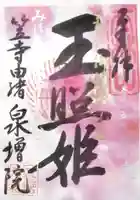 奉拝
玉照姫
笠寺由緒
泉増院